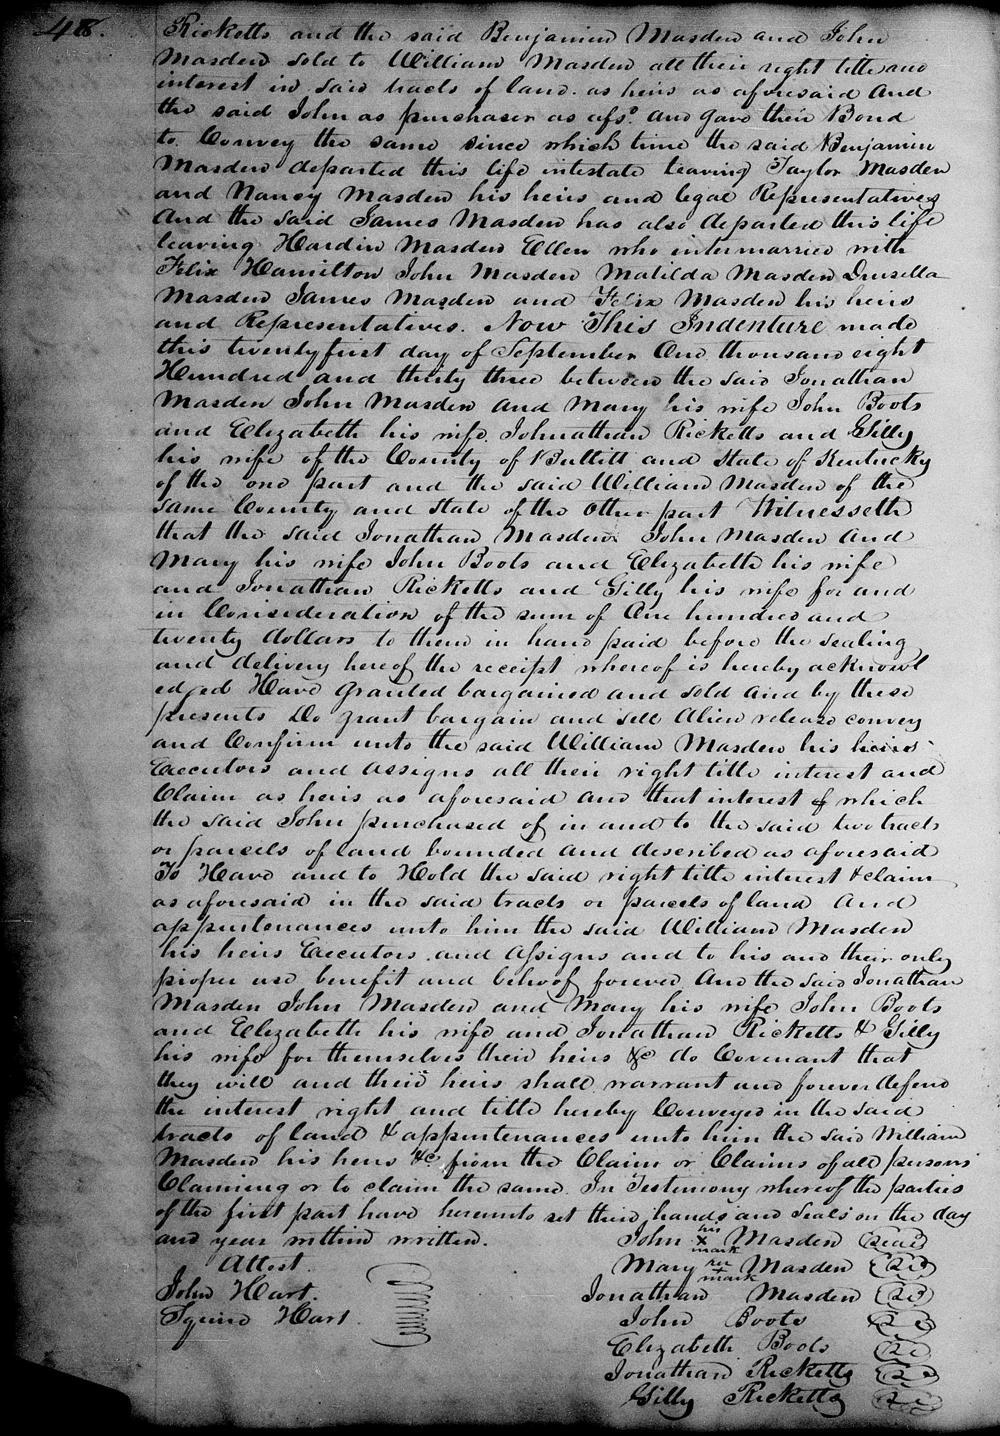 48.
Ricketts and the said Benjamin Masden and John
Masden sold to William Masden all their right title and
interest in said tracts of land as heirs as aforesaid and
the said John as purchaser as afsd. and gave their Bond
to Convey the same since which time the said Benjamin
Masden departed this life intestate leaving Taylor Masden
and Nancy Masden his heirs and legal Representatives
And the said James Masden has also departed this life
leaving Hardin Masden Ellen who intermarried with
Felix Hamilton John Masden Matilda Masden Drusella
Masden James Masden and Felix Masden his heirs
and Representatives. Now This Indenture made
this twenty first day of September One thousand eight
Hundred and thirty three between the said Jonathan
Masden John Masden and Mary his wife John Boots
and Elizabeth his wife Johnathan Ricketts and Gilly
his wife of the County of Bullitt and State of Kentucky
of the one part and the said William Masden of the
same County and State of the other part Witnesseth
that the said Jonathan Masden John Masden and
Mary his wife John Boots and Elizabeth his wife
and Jonathan Ricketts and Gilly his wife for and
in Consideration of the sum of One hundred and
twenty dollars to them in hand paid before the sealing
and delivery hereof the receipt whereof is hereby acknowl
edged Have granted bargained and sold and by these
presents Do grant bargain and sell Alien release convey
and Confirm unto the said William Masden his heirs
Executors and assigns all their right title interest and
Claim as heirs as aforesaid and that interest of which
the said John purchased of in and to the said two tracts
or parcels of land bounded and described as aforesaid
To Have and to Hold the said right title interest & claim
as aforesaid in the said tracts or parcels of land and
appurtenances unto him the said William Masden
his heirs Executors and Assigns and to his and their only
proper use benefit and behoof forever And the said Jonathan
Masden John Masden and Mary his wife John Boots
and Elizabeth his wife and Jonathan Ricketts & Gilly
his wife for themselves their heirs &c do Covenant that
they will and their heirs shall warrant and forever defend
the interest right and title hereby Conveyed in the said
tracts of land & appurtenances unto him the said William
Masden his heirs &c from the Claim or Claims of all persons
Claiming or to claim the same. In Testimony whereof the parties
of the first part have hereunto set their hands and seals on the day
and year within written.
John his X mark Masden (Seal)
Attest.
Mary her + mark Masden (Sd)
John Hart.
Jonathan Masden (Sd)
Squire Hart.
John Boots (Sd)
Elizabeth Boots (Sd)
Jonathan Ricketts (Sd)
Gilly Ricketts (Sd)